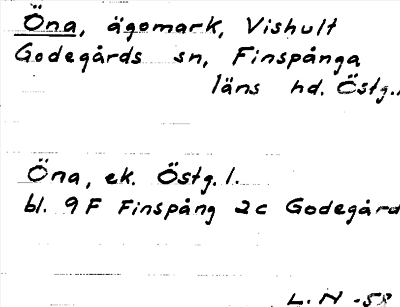 Öna, ägomark, Vishult
Godegårds sn, Finspånga
läns hd. Östg.
Öna, ek. Östg. l.
bl. 9F Finspång 2c Godegård
L. N -58